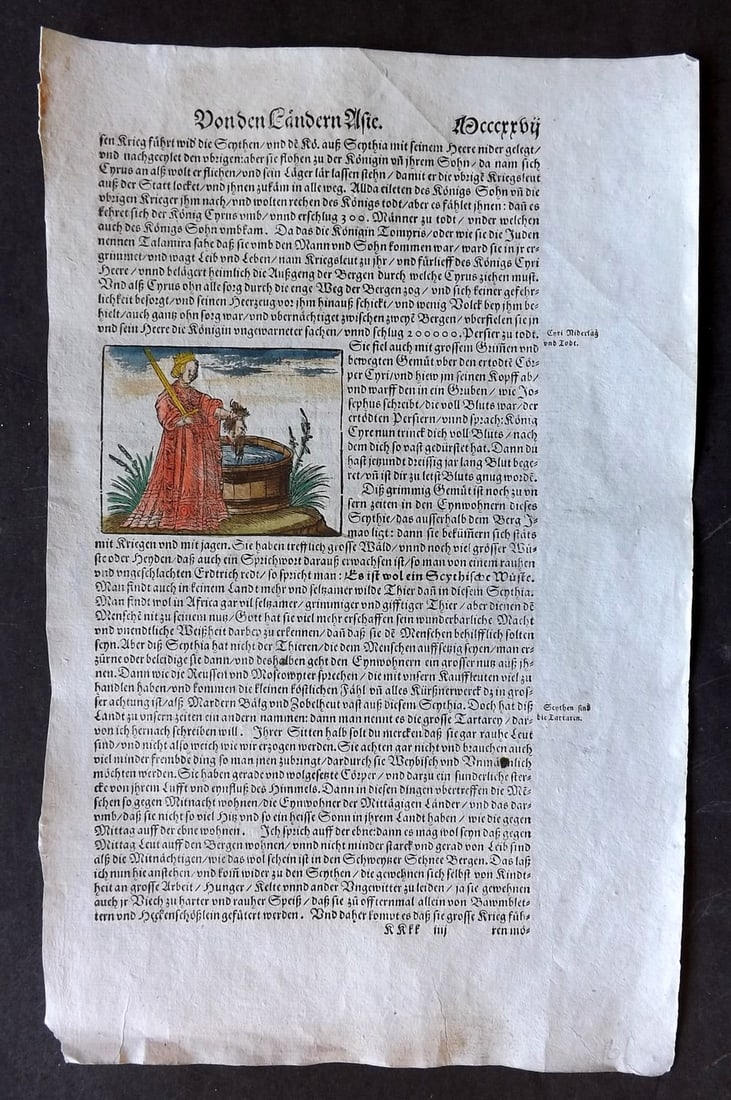 Von den Ländern Asie. Mcccxxvij
sen Krieg führt wid die Scythen/ vnd dẽ Kö. auß Scythia mit seinem Heere nider gelegt/
vnd nachgeeylet den vbrigen: aber sie flohen zu der Königin vñ jhrem Sohn/ da nam sich
Cyrus an alß wolt er fliehen/ vnd sein Läger lär lassen stehn/ damit er die vbrigẽ Kriegsleut
auß der Statt locket/ vnd jhnen zukäm in alle weg. Allda eileten des Königs Sohn vñ die
vbrigen Krieger jhm nach/ vnd wolten rechen des Königs todt/ aber es fählet jhnen: dañ es
kehret sich der König Cyrus vmb/ vnnd erschlug 300. Männer zu todt/ vnder welchen
auch des Königs Sohn vmbkam. Da das die Königin Tomyris/ oder wie sie die Juden
nennen Talamira sahe daß sie vmb den Mann vnd Sohn kommen war/ ward sie in jr er-
grimmet/ vnd wagt Leib vnd Leben/ nam Kriegsleut zu jhr/ vnd fürlieff des Königs Cyri
Heere/ vnnd belägert heimlich die Außgeng der Bergen durch welche Cyrus ziehen must.
Vnd alß Cyrus ohn alle sorg durch die enge Weg der Bergen zog/ vnd sich keiner gefehr-
lichkeit besorgt/ vnd seinen Heerzeug vor jhm hinauß schickt/ vnd wenig Volck bey jhm be-
hielt/ auch gantz ohn sorg war/ vnd vbernächtiget zwischen zweyẽ Bergen/ vberfielen sie jn
vnd sein Heere die Königin vngewarneter sachen/ vnnd schlug 200000. Persier zu todt.
Cyri Niderlag
vnd Todt.
Sie fiel auch mit grossem Grim̃en vnd
bewegten Gemüt vber den ertödtẽ Cör-
per Cyri/ vnd hiew jm seinen Kopff ab/
vnd warff den in ein Gruben/ wie Jo-
sephus schreibt/ die voll Bluts war/ der
ertödten Persiern/ vnnd sprach: König
Cyre nun trinck dich voll Bluts/ nach
dem dich so vast gedürstet hat. Dann du
hast jetzundt dreissig jar lang Blut bege-
ret/ vñ ist dir zu letst Bluts gnug wordẽ.
Diß grimmig Gemüt ist noch zu vn
sern zeiten in den Eynwohnern dieses
Scythie/ das ausserhalb dem Berg J-
mao ligt: dann sie beküm̃ern sich stäts
mit Kriegen vnd mit jagen. Sie haben trefflich grosse Wäld/ vnnd noch viel grösser Wü-
ste oder Heyden/ daß auch ein Sprichwort darauß erwachsen ist/ so man von einem rauhen
vnd vngeschlachten Erdtrich redt/ so spricht man: Es ist wol ein Scythische Wüste.
Man findt auch in keinem Landt mehr vnd seltzamer wilde Thier dañ in diesem Scythia.
Man findt wol in Africa gar vil seltzamer/ grimmiger vnd gifftiger Thier/ aber dienen dẽ
Menschẽ nit zu seinem nutz/ Gott hat sie viel mehr erschaffen sein wunderbarliche Macht
vnd vnendtliche Weißheit darbey zu erkennen/ dañ daß sie dẽ Menschen behilfflich solten
seyn. Aber diß Scythia hat nicht der Thieren/ die dem Menschen auffsetzig seyen/ man er-
zürne oder beleidige sie dann/ vnd deshalben geht den Eynwohnern ein grosser nutz auß jh-
nen. Dann wie die Reussen vnd Moscowyter sprechen/ die mit vnsern Kauffleuten viel zu
handlen haben/ vnd kommen die kleinen köstlichen Fähl vñ alles Kürßnerwerck dz in gros-
ser achtung ist/ alß Mardern Bälg vnd Zobelheut vast auß diesem Scythia. Doch hat diß
Landt zu vnsern zeiten ein andern nammen: dann man nennt es die grosse Tartarey/ dar-
Scythen sind
die Tartaren.
von ich hernach schreiben will. Jhrer Sitten halb solt du mercken daß sie gar rauhe Leut
sind/ vnd nicht also weich wie wir erzogen werden. Sie achten gar nicht vnd brauchen auch
viel minder frembde ding so man jnen zubringt/ dardurch sie Weybisch vnd Vnmännlich
möchten werden. Sie haben gerade vnd wolgesetzte Cörper/ vnd darzu ein sunderliche ster-
cke von jhrem Lufft vnd eynfluß des Himmels. Dann in diesen dingen vbertreffen die Mẽ-
schen so gegen Mitnacht wohnen/ die Eynwohner der Mittägigen Länder/ vnd das dar-
vmb/ daß sie nicht so viel Hitz vnd so ein heisse Sonn in jhrem Landt haben/ wie die gegen
Mittag auff der ebne wohnen. Jch sprich auff der ebne: dann es mag wol seyn daß gegen
Mittag Leut auff den Bergen wohnen/ vnnd nicht minder starck vnd gerad von Leib sind
alß die Mitnächtigen/ wie das wol schein ist in den Schweytzer Schnee Bergen. Das laß
ich nun hie anstehen/ vnd kom̃ wider zu den Scythen/ die gewehnen sich selbst von Kindt-
heit an grosse Arbeit/ Hunger/ Kelte vnnd ander Vngewitter zu leiden/ ja sie gewehnen
auch jr Viech zu harter vnd rauher Speiß/ daß sie zü offternmal allein von Bawmblet-
tern vnd Heckenschößlein gefütert werden. Vnd daher kompt es daß sie grosse Krieg füh-
KKkk iiij ren mö-